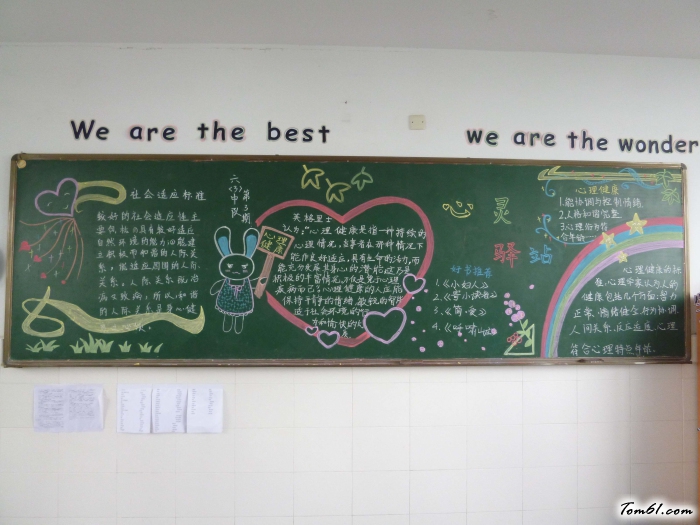 We are the best
we are the wonder
社会适应标准
较好的社会适应性主
要包括:具有较好适应
自然环境的能力;能建
立积极而和谐的人际关
系,能适应周围的人际
关系,人际关系
六(3)中队
第3期
心理健康
英格里士
认为:"心理健康是指一种持续的
心理情况,当事者在那种情况下
能作良好适应,具有生命的活力,而
能充分发展其身心的潜能这乃是
积极的丰富情况,不仅是免于心理
疾病而已;心理健康的人应能
保持平静的情绪,敏锐的智能
适于社会环境的行
好书推荐
1.《小妇人》
3.《简·爱》
4.《呼啸山庄
灵
驿站
心理健康
1.能协调与控制情绪
2.人格和谐完整
心理健康的标
准,心理学家认为人的
健康包括几个方面:智力
正常、情绪健全、行为协调、
人间关系、反应适度、心理
符合心理特点年龄。
Tom61.com